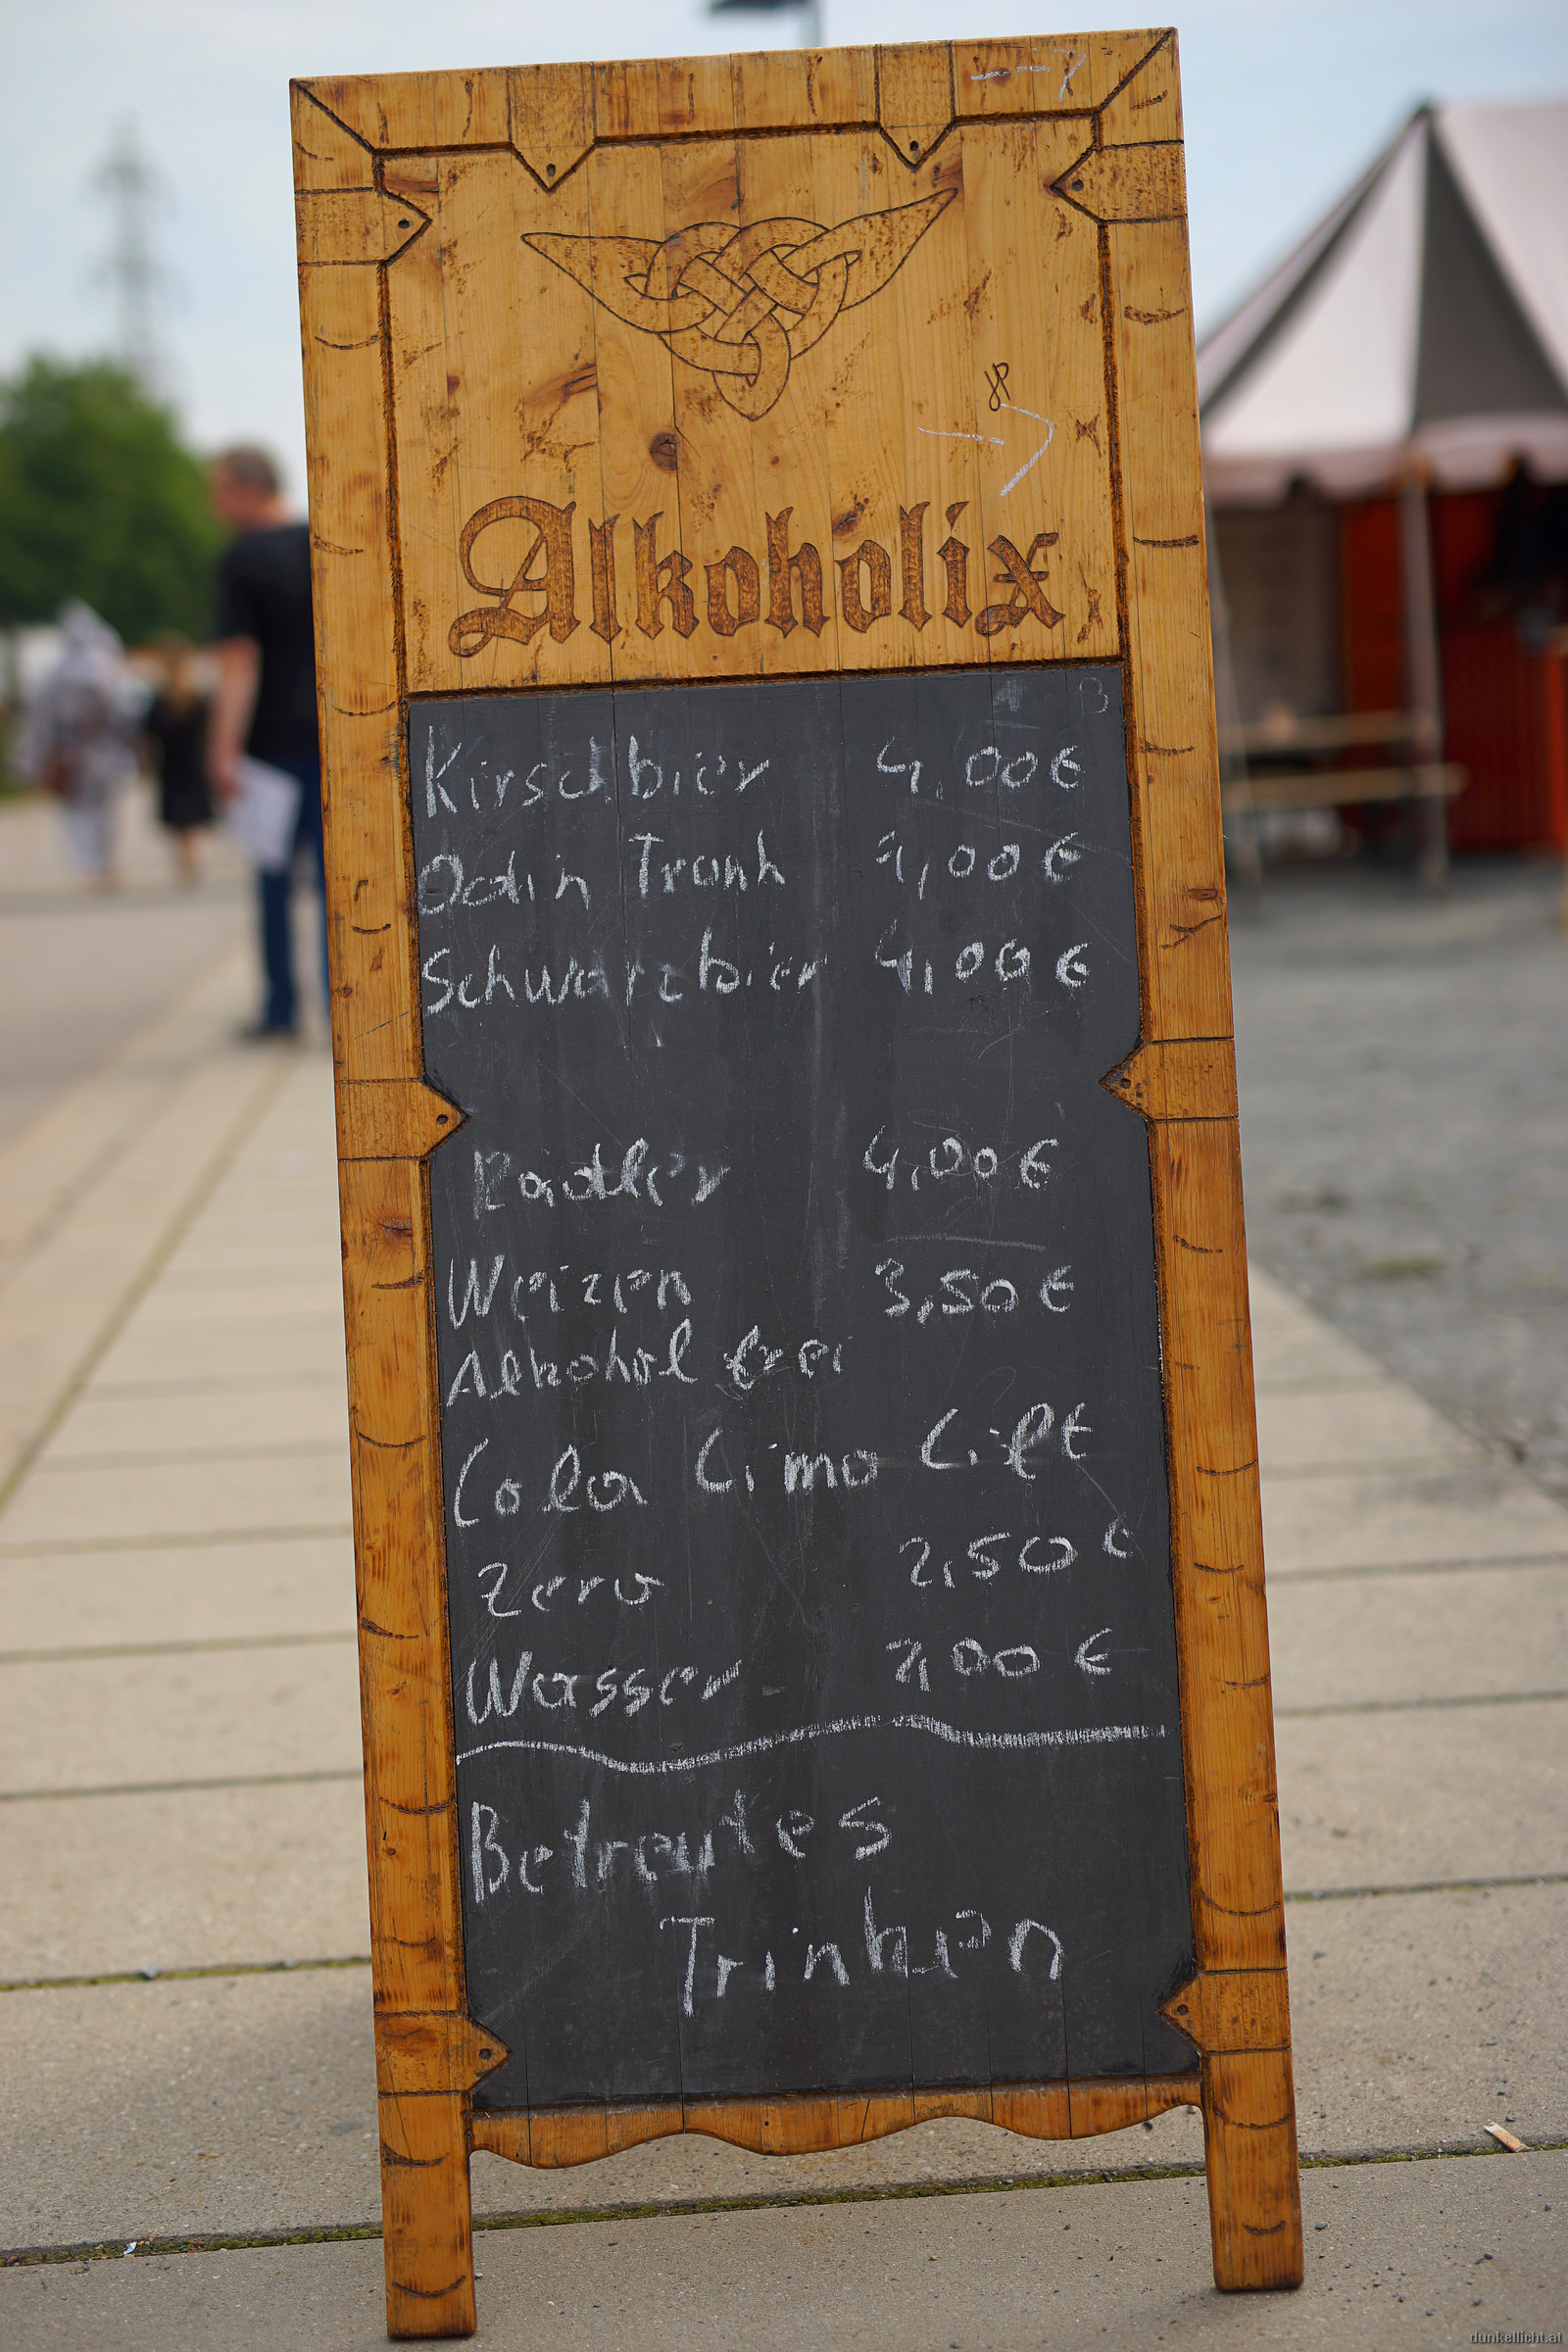 Alkoholix
Kirschbier 4,00€
Odin Trank 4,00€
Schwarzbier 4,00€
Radler 4,00€
Weizen 3,50€
Alkohol frei
Cola Limo Lift
Zero 2,50€
Wasser 2,00€
Betreutes
Trinken
dunkellicht.at